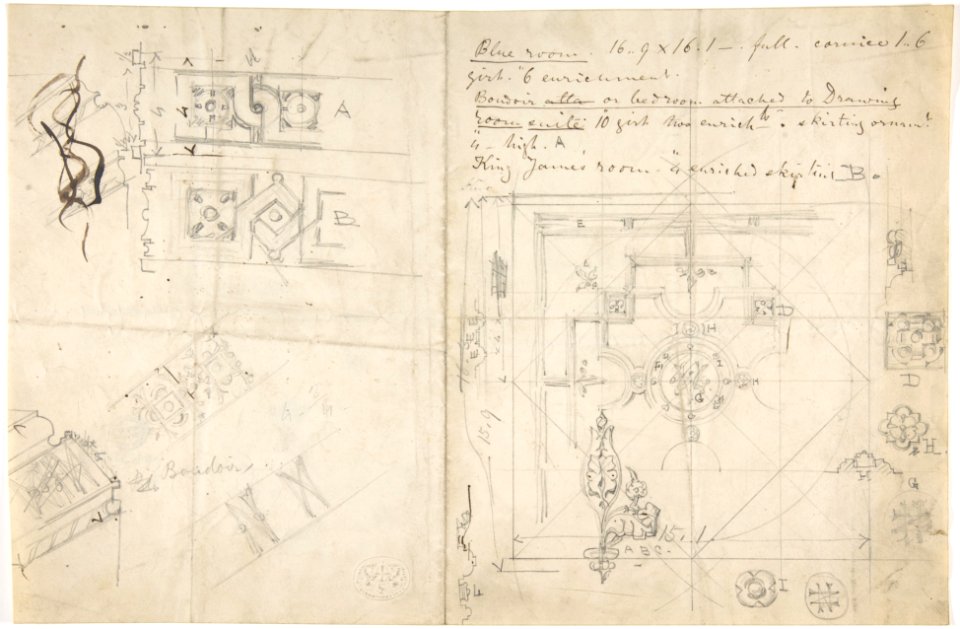 Blue room. 16..9 x 16.1 — full. cornice 1..6
girt. "6 enrichment.
Boudoir or bedroom attached to Drawing
room suite 10 girt two enrich ts. skirting ornamt
4 — high. A
King James' room 4 enriched skirting B.
A
B
E
D
I H
F
H
G
EEE
15.9
Boudoir
15.1
A B C.
D
H.
G
F
I